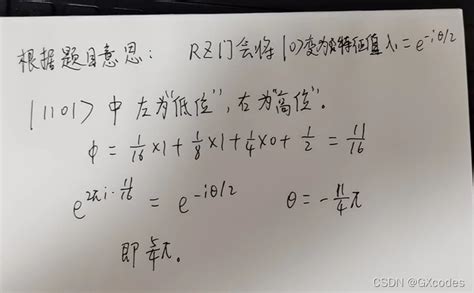 根据题目意思: RZ门会将|0⟩变为特征值λ₁=e^{-iθ/2}
|1101⟩中 左为"低位", 右为"高位".
φ = 1/16 ×1 + 1/8 ×1 + 1/4 ×0 + 1/2 = 11/16
e^{2πi·11/16} = e^{-iθ/2} θ = -11/4 π
即 5/4 π.
CSDN @GXcodes